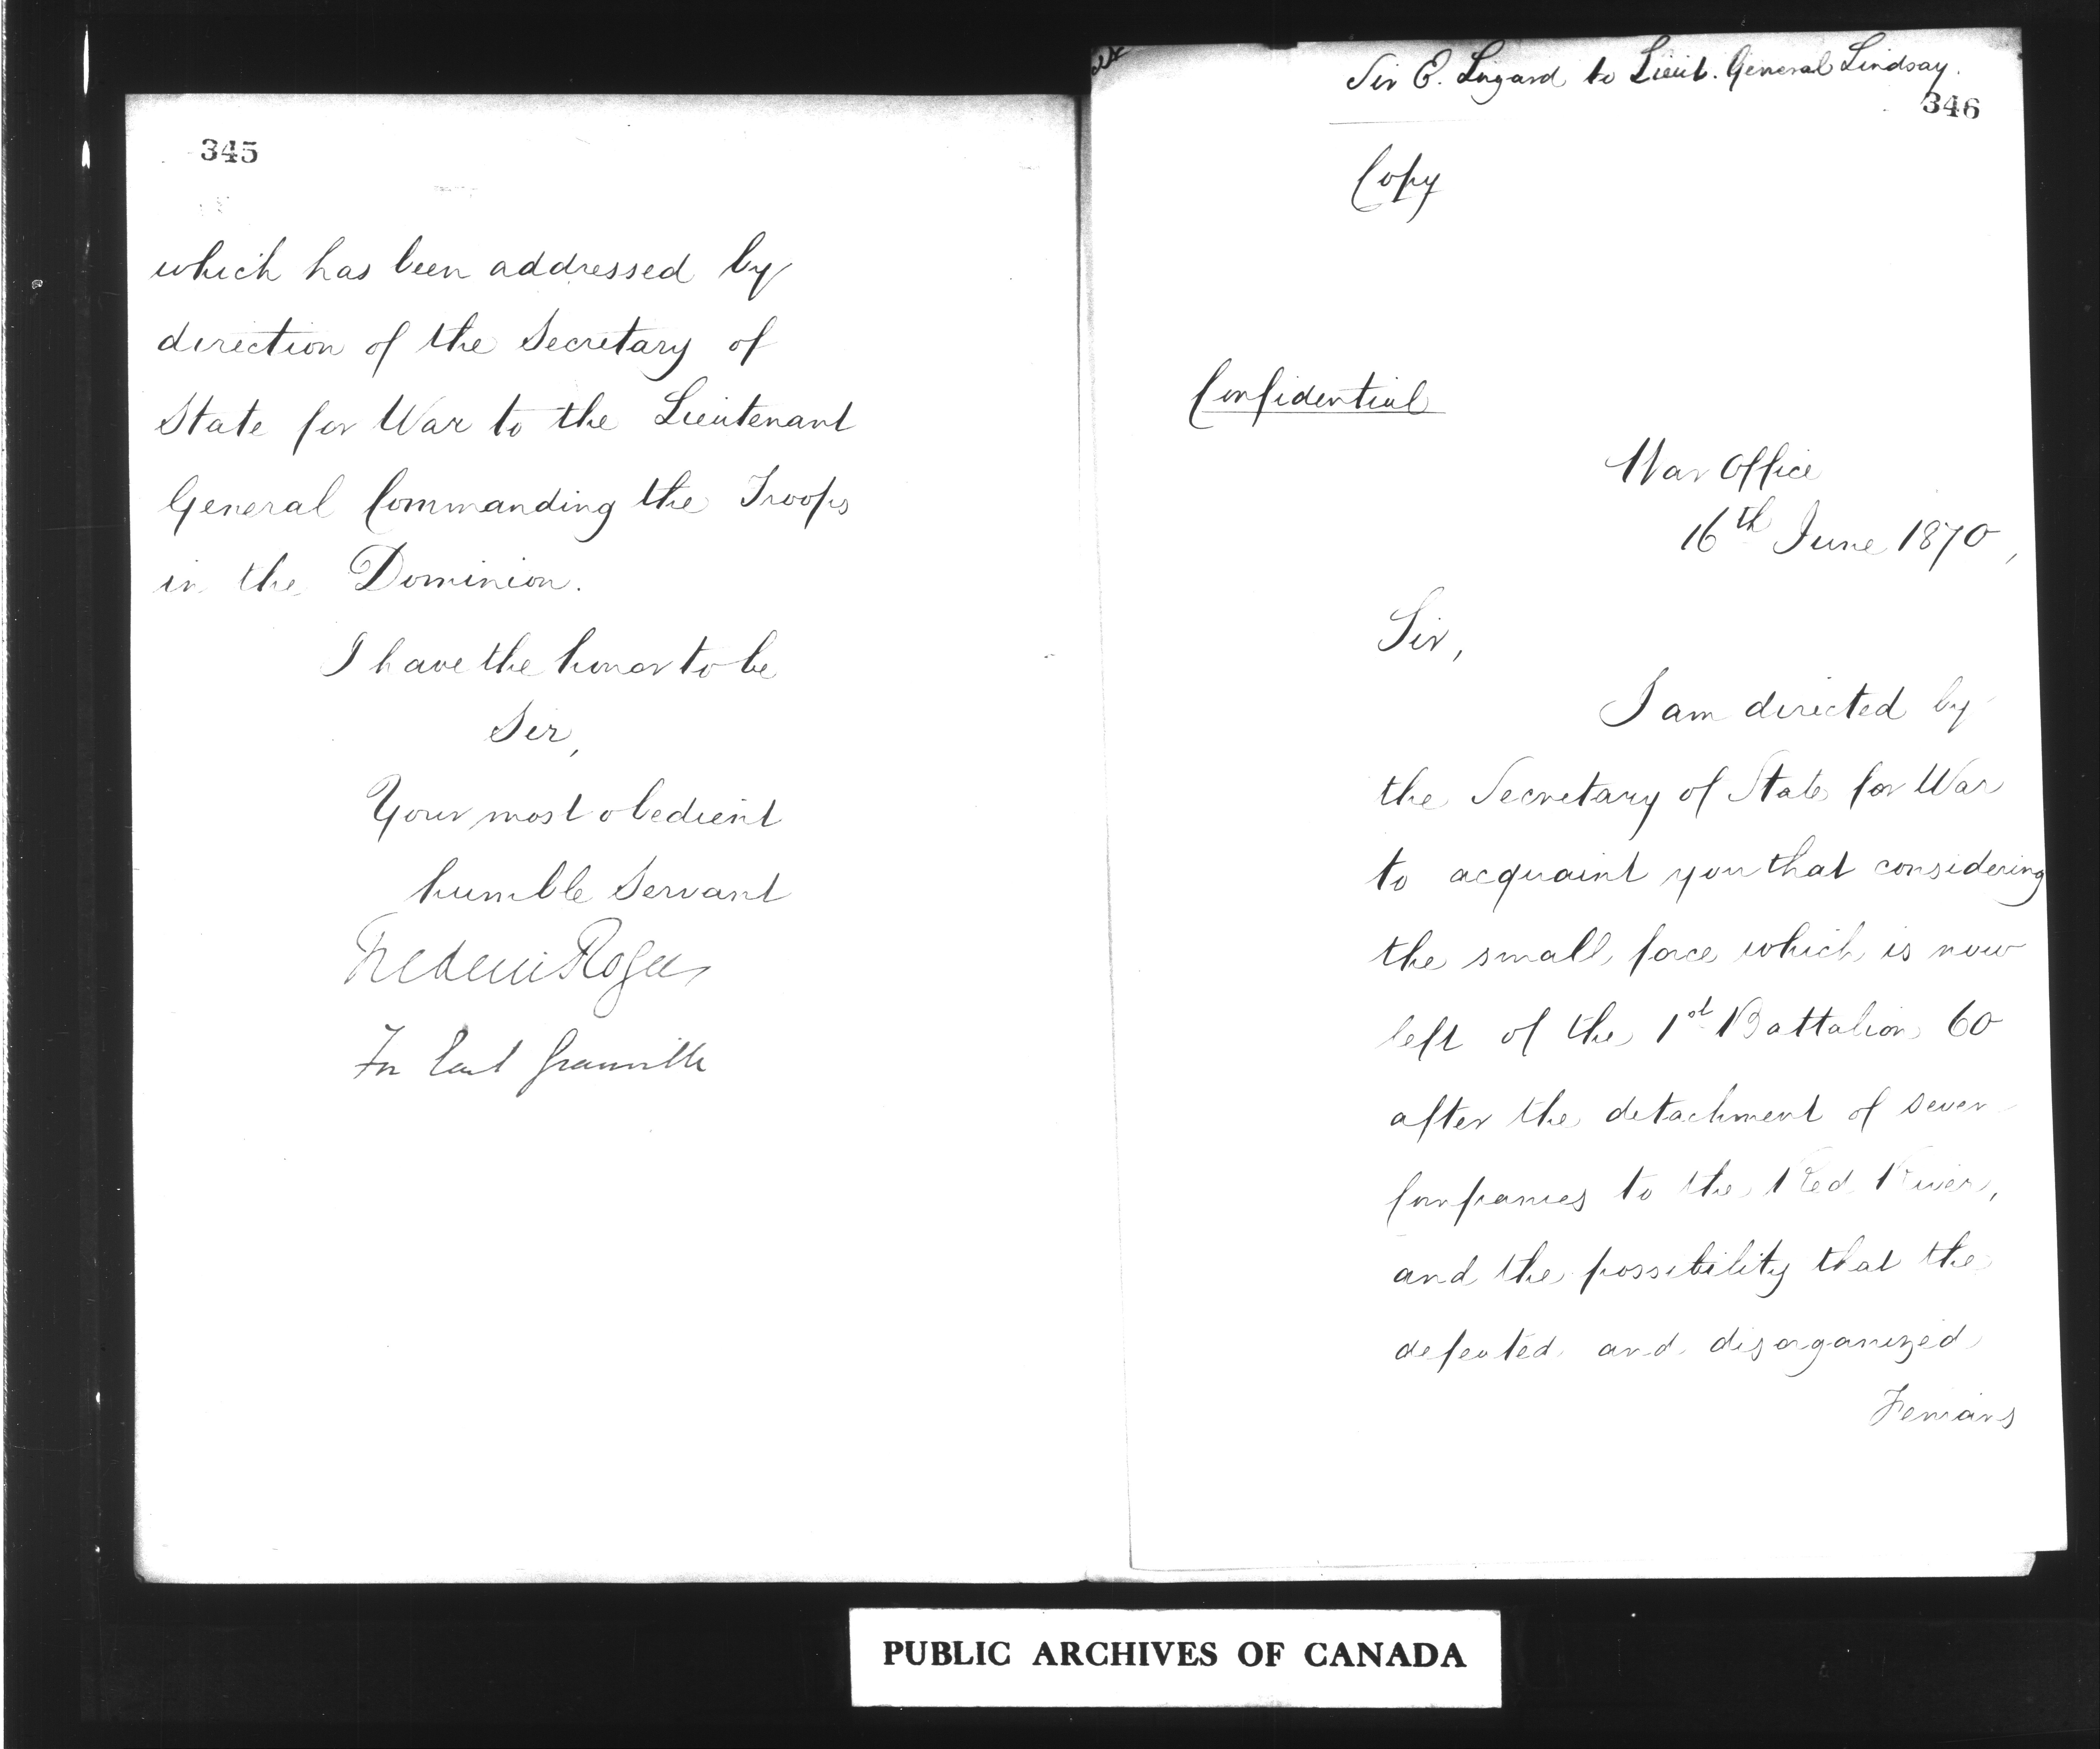 345
which has been addressed by
direction of the Secretary of
State for War to the Lieutenant
General Commanding the Troops
in the Dominion.
I have the honor to be
Sir,
Your most obedient
humble Servant
Frederic Rogers
For Earl Granville
Sir E. Lugard to Lieut. General Lindsay.
346
Copy
Confidential
War Office
16th June 1870,
Sir,
I am directed by
the Secretary of State for War
to acquaint you that considering
the small force which is now
left of the 1st Battalion 60
after the detachment of seven
Companies to the Red River,
and the possibility that the
defeated and disorganized
Fenians
PUBLIC ARCHIVES OF CANADA